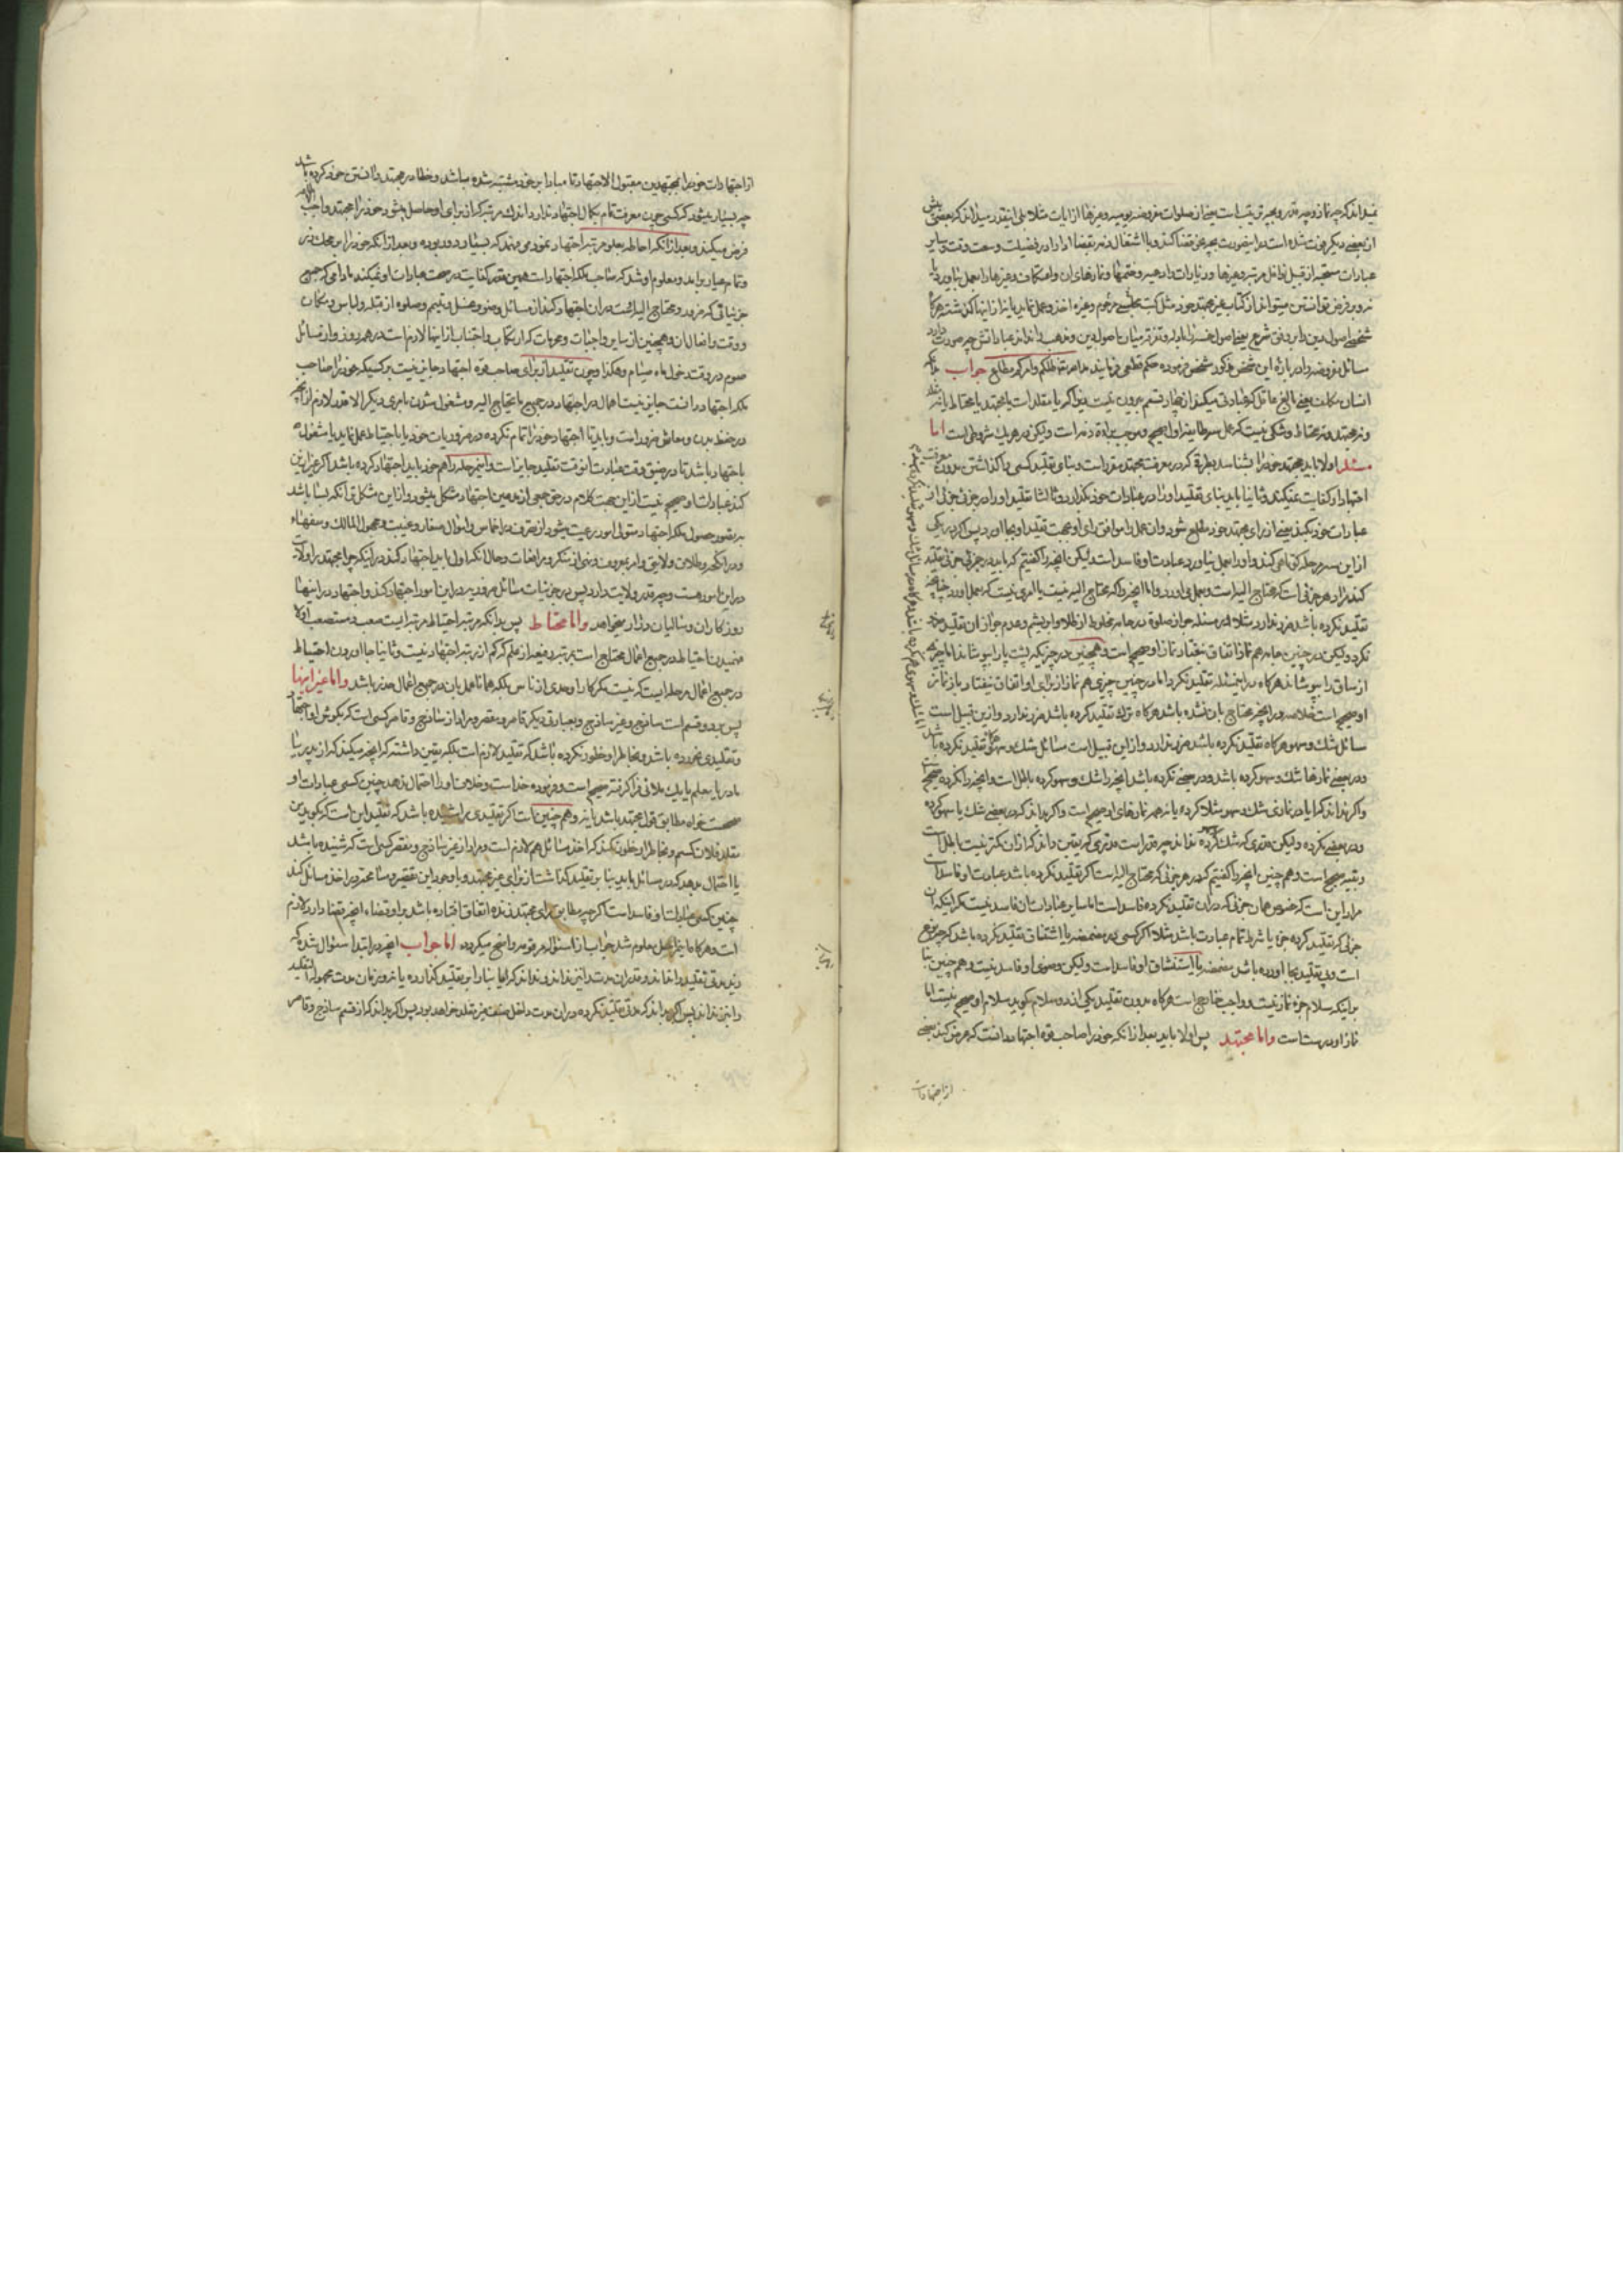 نمیداند که چه نماز و چه قدر و بچه ترتیب است یعنی از صلوات مفروضه یومیه و غیرها از آیات مثلا بلی اینقدر میداند که بعضی پیش
از بعضی دیگر فوت شده است در اینصورت بچه نحو قضا کند و با اشتغال ذمه بقضا ادا را در فضیلت وسعت وقت و سایر
عبادات مستحبه از قبیل نوافل مرتبه و غیرها و زیارات و ادعیه و ختمها و نمازهای آن و اعتکاف و غیرها را بعمل بیاورد یا
نه و بر فرض توانستن میتواند از کتاب غیر مجتهد خود مثل کتب مجلسی مرحوم و غیره اخذ و عمل نماید یا نه از اینها گذشته هرگاه
شخصی اصول دین را بر وفق شرع یعنی اصول خمسه را بداند و تفرقه میان اصول دین و مذهب را نداند عباداتش چه صورت دارد
سائل مفروضه را در باره این شخص مذکور مشخص فرموده حکم قطعی فرمایند مدّ ظلّکم وامرکم مطاع جواب بدانکه
انسان مکلف یعنی بالغ عاقل که عبادتی میکند از چهار قسم بیرون نیست بجهة آنکه یا مقلد است یا مجتهد یا محتاط یا نه مقلد
و نه مجتهد و نه محتاط و شکی نیست که عمل سه طایفه اول صحیح و موجب برائة ذمه است ولیکن در هریک شروطی است اما
مقلد اولا باید مجتهد خود را بشناسد بطریقی که در معرفت مجتهد مقرر است و بنای تقلید کسی را گذاشتن بدون معرفت
اجتهاد او کفایت نمیکند و ثانیا باید بنای تقلید او را در عبادات خود بگذارد و ثالثا تقلید او را در جزئی جزئی از
عبادات خود بکند یعنی از رای مجتهد خود مطلع شود و آن عمل را موافق رای او بجهت تقلید او بجا آورد پس اگر در یکی
از این سه مرحله کوتاهی کند و او را بعمل نیاورد عبادت او فاسد است لیکن آنچه را گفتیم که باید در جزئی جزئی تقلید
کند مراد هر جزئی است که محتاج الیه است و بعمل می آورد و اما آنچه را که محتاج الیه نیست یا امری نیست که بعمل آورد چنانچه
تقلید نکرده باشد ضرر ندارد مثلا در مسئله جواز صلوة در جامه مخلوط از طلا و ابریشم و عدم جواز آن تقلید مجتهد
نکرد ولیکن در چنین جامه هم نماز اتفاق نیفتاد نماز او صحیح است و همچنین در چیزیکه پشت پا را بپوشاند اما چیزی
از ساق را نپوشاند هرگاه در این مسئله تقلید نکرد اما در چنین چیزی هم نماز از برای او اتفاق نیفتاد باز نماز
او صحیح است خلاصه در آنچه محتاج بآن نشده باشد هرگاه ترک تقلید کرده باشد ضرر ندارد و از این قبیل است
مسائل شک و سهو هرگاه تقلید نکرده باشد ضرر ندارد و از این قبیل است مسائل شک و سهو که تقلید نکرده باشد
و در بعضی نمازها شک و سهو کرده باشد و در بعضی نکرده باشد آنچه را شک و سهو کرده باطل است و آنچه را نکرده صحیح است
و اگر نداند که آیا در نمازی شک و سهو مثلا کرده یا نه همه نمازهای او صحیح است و اگر بداند که در بعضی شک یا سهو کرده
و در بعضی نکرده ولیکن قدری که شک کرده نداند چه قدر است قدری که یقین داند که از آن کمتر نیست باطل است
و بقیه صحیح است و هم چنین آنچه را گفتیم که در هر جزئی که محتاج الیه است اگر تقلید نکرده باشد عبادت او فاسد است
مراد این است که خصوص همان جزئی که در آن تقلید نکرده فاسد است اما سایر عبادات آن فاسد نیست مگر اینکه آن
جزئی که تقلید نکرده جزء یا شرط تمام عبادت باشد مثلا اگر کسی در مضمضه یا استنشاق تقلید نکرده باشد که جزء وضوع
است و بی تقلید بجا آورده باشد مضمضه یا استنشاق او فاسد است ولیکن وضوی او فاسد نیست و هم چنین بنا
بر اینکه سلام جزء نماز نیست و واجب خارج است هرگاه بدون تقلید یکی از دو سلام گوید سلام او صحیح نیست اما
نماز او درست است و اما مجتهد پس اولا باید بعد از آنکه خود را صاحب قوه اجتهاد دانست که عرض کند بعضی
از اجتهادات
از اجتهادات خود را بمجتهدین مقبول الاجتهاد تا مبادا بر خود مشتبه شده باشد و خطا در مجتهد دانستن خود کرده باشد
چه بسیار میشود که کسی چون معرفت تمام بکمال اجتهاد ندارد اندک مرتبه که از برای او حاصل میشود خود را مجتهد واجب
فرض میکند و بعد از آنکه احاطه بعلو مرتبه اجتهاد نمود می فهمد که بسیار دور بوده و بعد از آنکه خود را بر محک زد
و تمام عیار برآمد و معلوم او شد که صاحب ملکه اجتهاد است همین قدر کفایت در صحت عبادات او نمیکند مادامی که جمیع
جزئیاتی که ضرور و محتاج الیه است در آن اجتهاد کند از مسائل وضو و غسل و تیمم و صلوة از قبله و لباس و مکان
و وقت و افعال آن و همچنین از سایر واجبات و محرمات که ارتکاب و اجتناب از اینها لازم است در هر روز و از مسائل
صوم در وقت دخول ماه صیام و هکذا و چون تقلید از برای صاحب قوه اجتهاد جایز نیست بر کسیکه خود را صاحب
ملکه اجتهاد دانست جایز نیست اهمال در اجتهاد در جمیع ما یحتاج الیه و مشغول شدن بامری دیگر الا قدر لازم از آنچه
در حفظ بدن و معاش ضرور است و باید تا اجتهاد خود را تمام نکرده در ضروریات خود یا باحتیاط عمل نماید یا مشغول
باجتهاد باشد تا در ضیق وقت عبادت آنوقت تقلید جایز است و اینمرحله را هم خود باید اجتهاد کرده باشد اگر غیر این
کند عبادات او صحیح نیست از این جهت کلام در حق جمعی از مدعین اجتهاد مشکل میشود و از این مشکل تر آنکه بسا باشد
بتصور حصول ملکه اجتهاد متولی امور رعیت میشود از تصرف در اخماس و اموال صغار و غیب و مجهول المالک و سفهاء
و در انکحه و طلاق و لایق و امر بمعروف و نهی از منکر و مرافعات و حال آنکه اول باید اجتهاد کند در اینکه چرا مجتهد را ولایت
در این امور هست و چه قدر ولایت دارد پس در جزئیات مسائل ضروریه در این امور اجتهاد کند و اجتهاد در اینها
روزگاران و سالیان دراز میخواهد و اما محتاط پس بدانکه مرتبه احتیاط مرتبه ایست صعب و مستصعب اولا
فهمیدن احتیاط در جمیع اعمال محتاج است بمرتبه رفیعه از علم که کم از رتبه اجتهاد نیست و ثانیا بجا آوردن احتیاط
در جمیع اعمال مرحله ایست که نیست مگر کار اوحدی از ناس بلکه همانا عمل بآن در جمیع اعمال متعذر باشد و اما غیر اینها
پس بر دو قسم است ساذج و غیر ساذج و بعبارت دیگر قاصر و مقصر و مراد از ساذج و قاصر کسی است که بگوش او اجتهاد
و تقلیدی نخورده باشد و بخاطر او خطور نکرده باشد که تقلید لازم است بلکه یقین داشته که آنچه میکند که از پدر یا
مادر یا معلم یا یک ملائی فرا گرفته صحیح است و فرموده خداست و خلاف او را احتمال ندهد چنین کسی عبادات او
صحیح است خواه مطابق قول مجتهد باشد یا نه و هم چنین است اگر تقلیدی را شنیده باشد که تقلید این است که بگوید من
مقلد فلان کسم و بخاطر او خطور نکند که اخذ مسائل هم لازم است و مراد از غیر ساذج و مقصر کسی است که شنیده باشد
یا احتمال بدهد که در مسائل باید بنا بر تقلید گذاشت از برای غیر مجتهد و با وجود این تقصیر و مسامحه در اخذ مسائل کند
چنین کسی عبادات او فاسد است اگر چه مطابق رای مجتهد زنده اتفاق افتاده باشد و بر او قضاء آنچه قضا دارد لازم
است و هرگاه ما نحن فیه معلوم شد جواب از اسئوله مرقومه واضح میگردد اما جواب آنچه در ابتدا سئوال شده که
زید مدتی تقلید را نداند و قدر آن مدت را نیز نداند و نداند که آیا بنا را بر تقلید گذارده یا نه و زمان مدت مجهوله التقلید
را نیز نداند پس اگر بداند که مدتی تقلید نکرده در آن مدت داخل صنف غیر مقلد خواهد بود پس اگر بداند که از قسم ساذج و قاصر